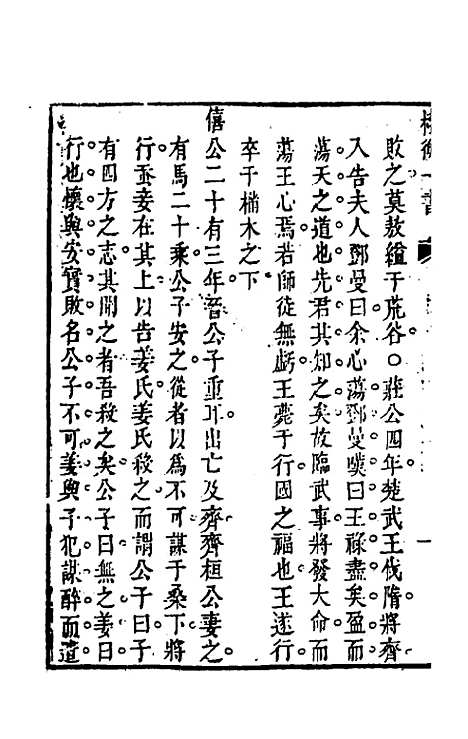 敗之莫敖縊于荒谷○莊公四年楚武王伐隋將齊
入告夫人鄧曼曰余心蕩鄧曼嘆曰王祿盡矣盈而
蕩天之道也先君其知之矣故臨武事將發大命而
蕩王心焉若師徒無虧王薨于行國之福也王遂行
卒于樠木之下
僖公二十有三年晉公子重耳出亡及齊齊桓公妻之
有馬二十乘公子安之從者以為不可謀于桑下將
行蚕妾在其上以告姜氏姜氏殺之而謂公子曰子
有四方之志其聞之者吾殺之矣公子曰無之姜曰
行也懷與安實敗名公子不可姜與子犯謀醉而遣